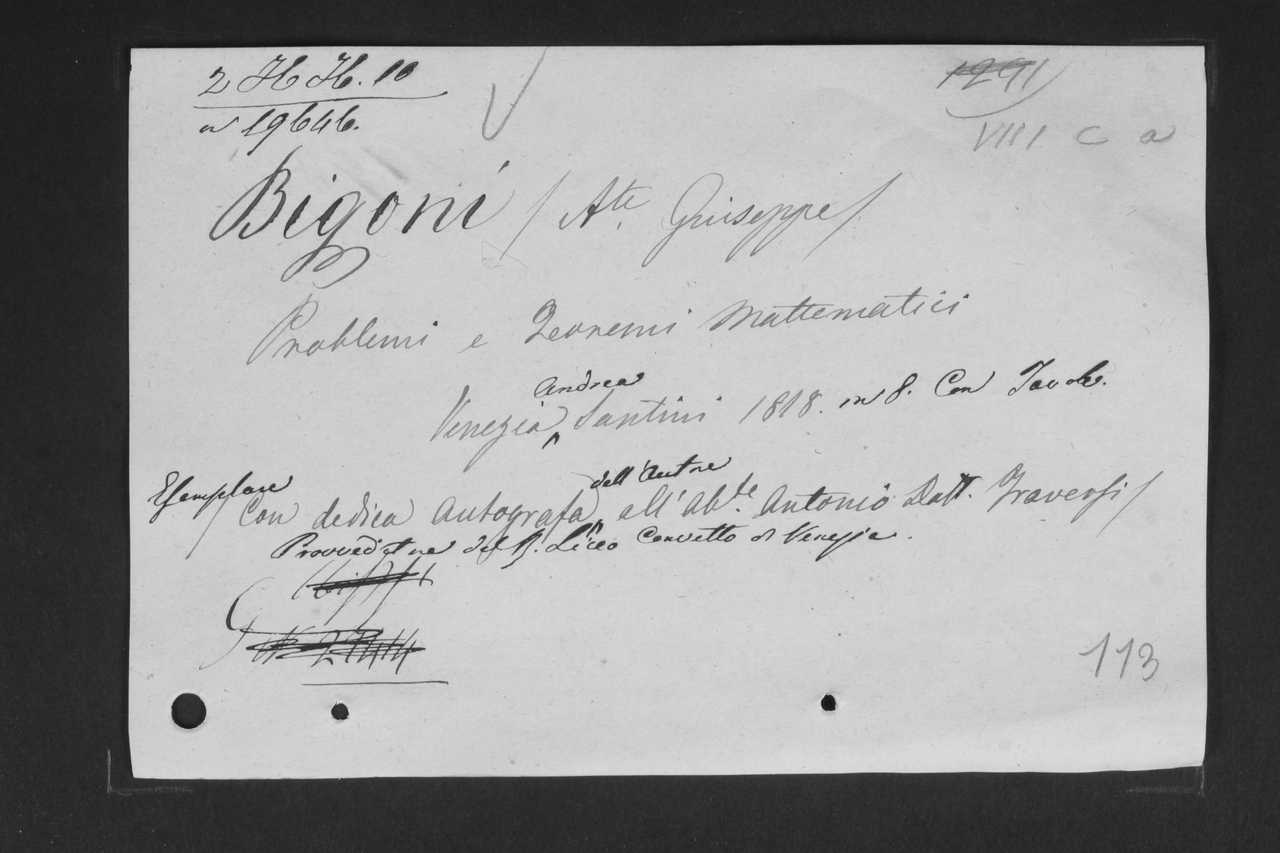 2 H H. 10
1291
n 19646.
VIII C a
Bigoni / Ate. Giuseppe /
Problemi e Teoremi Mattematici
Venezia Andrea Santini 1818. in 8. Con Tavole.
Esemplare / Con dedica autografa dell'Autore all'Abte. Antonio Dott. Traversi /
Provveditore del R. Liceo Convitto di Venezia.
113